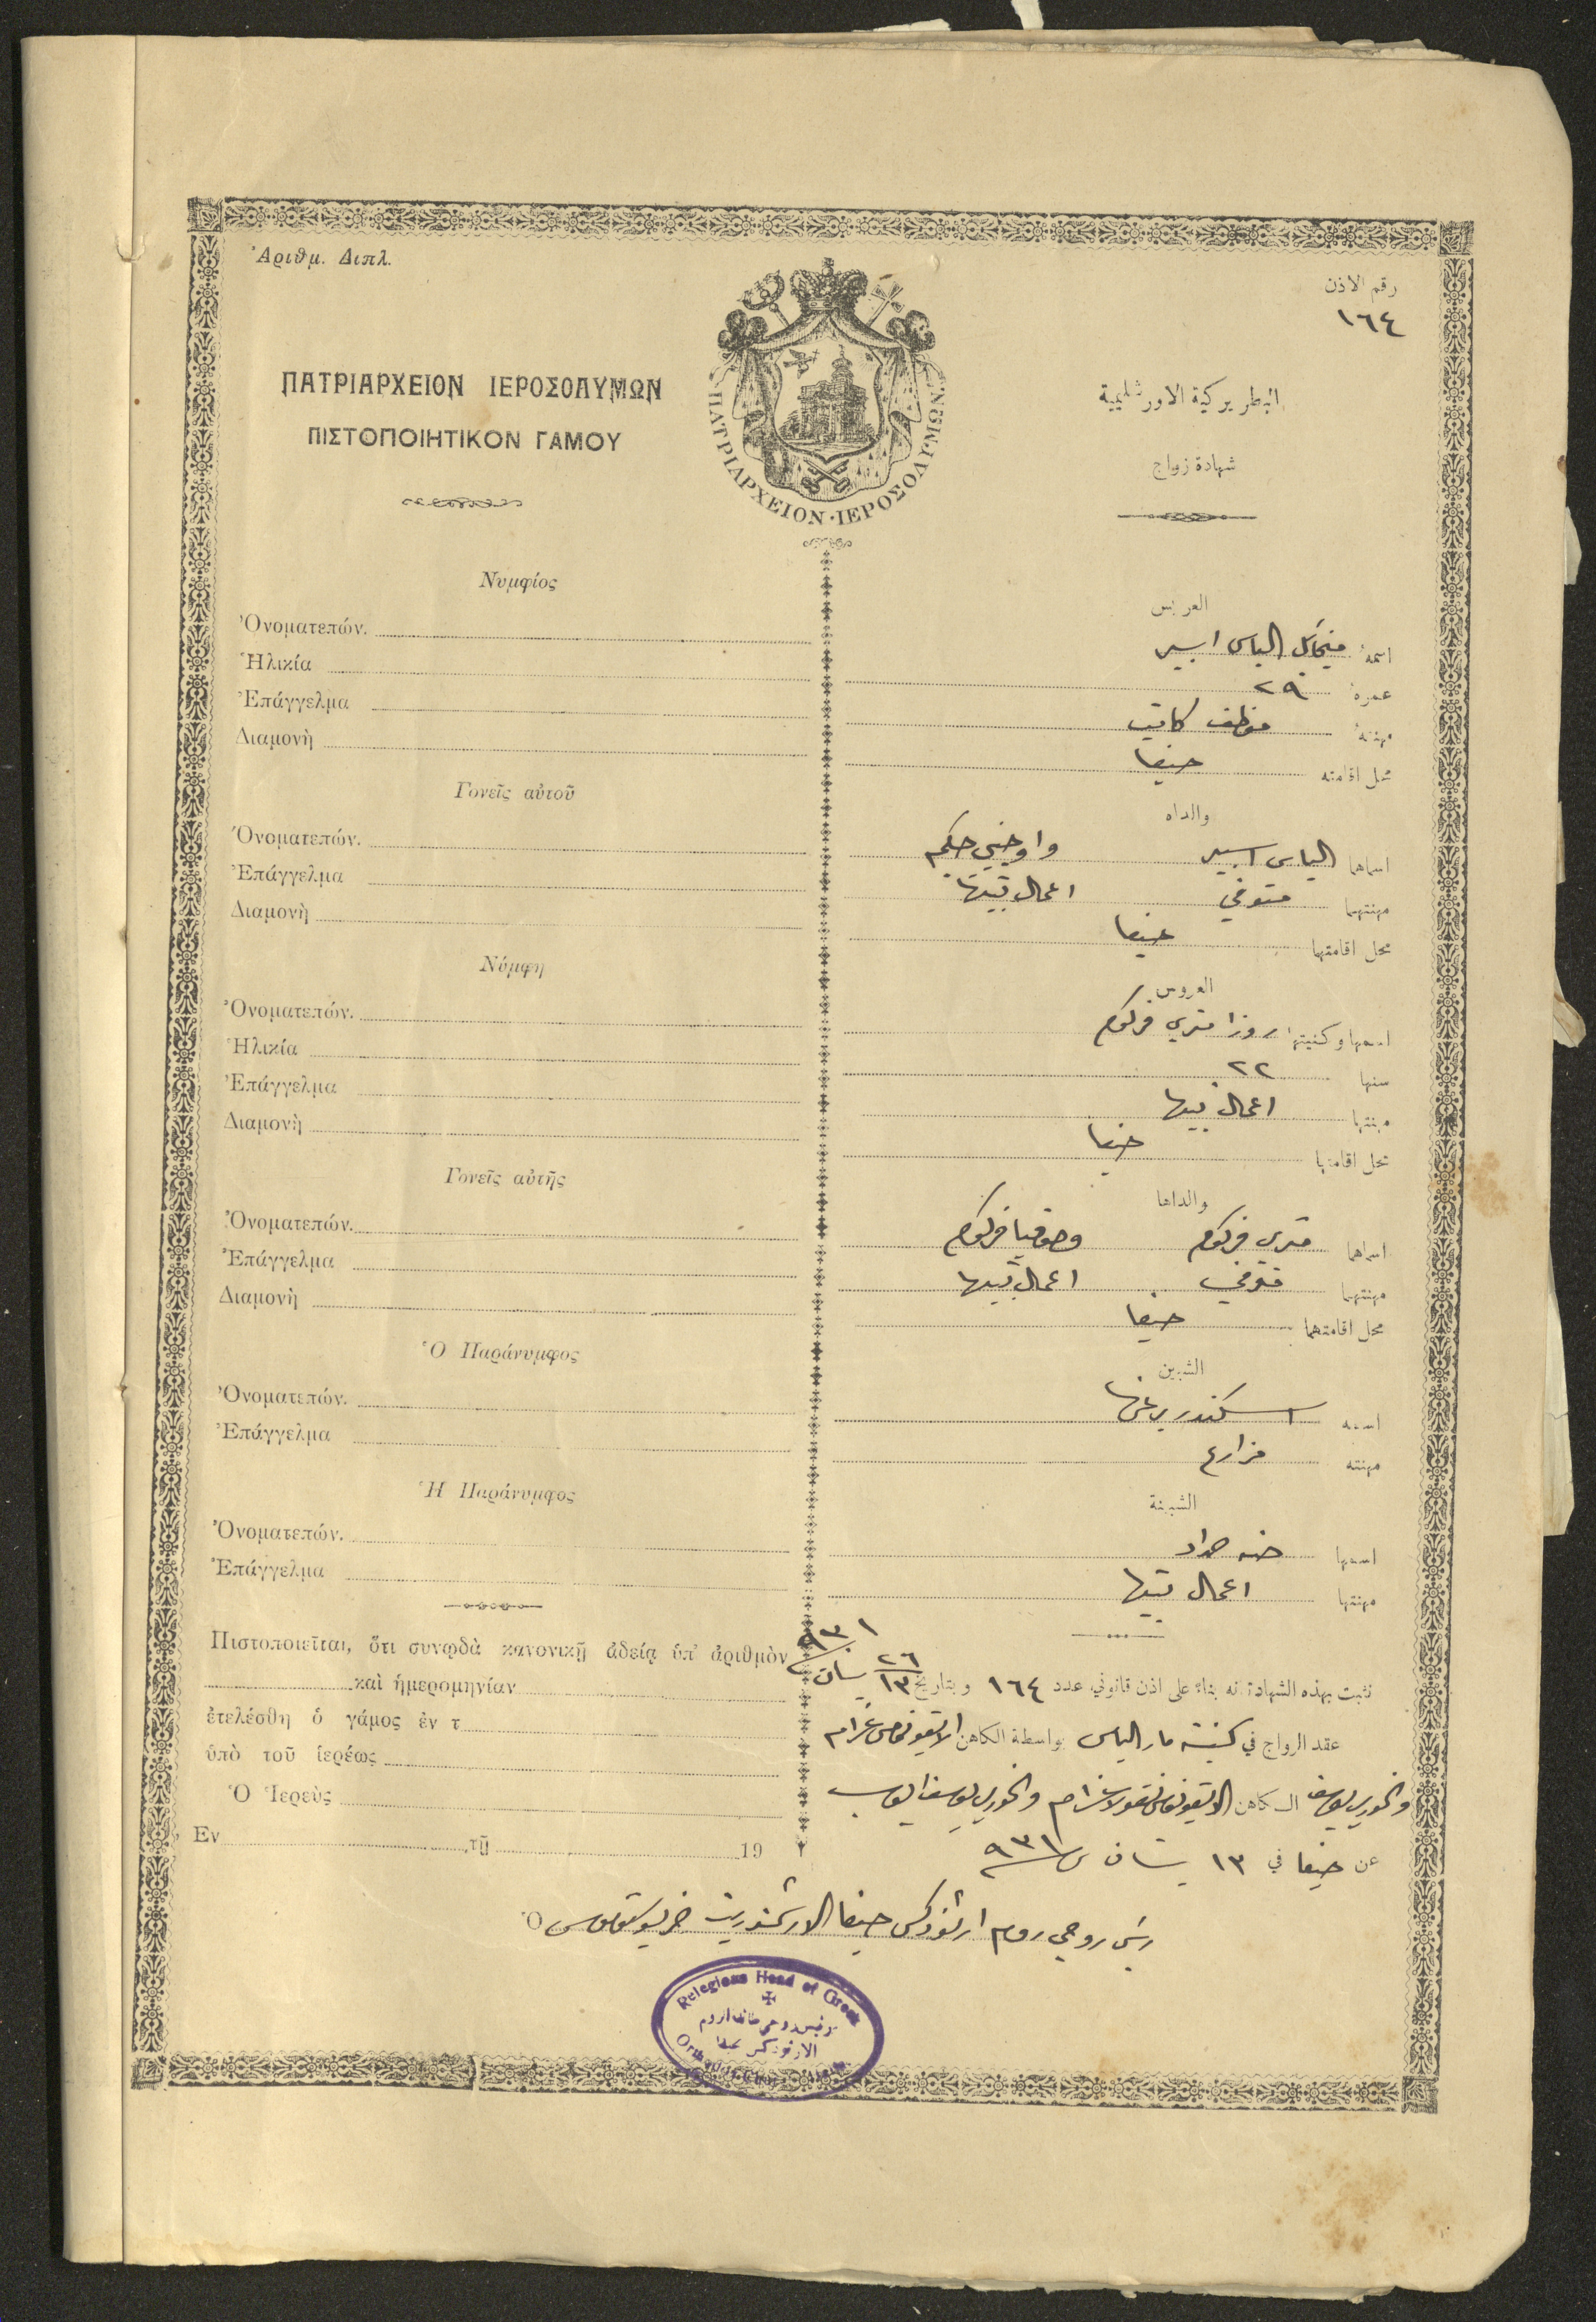 Ἀριθμ. Διπλ.
رقم الاذن
١٦٤
ΠΑΤΡΙΑΡΧΕΙΟΝ ΙΕΡΟΣΟΛΥΜΩΝ
ΠΙΣΤΟΠΟΙΗΤΙΚΟΝ ΓΑΜΟΥ
ΠΑΤΡΙΑΡΧΕΙΟΝ·ΙΕΡΟΣΟΛΥΜΩΝ
البطريركية الاورشليمية
شهادة زواج
Νυμφίος
Ὀνοματεπών.
Ἡλικία
Ἐπάγγελμα
Διαμονὴ
Γονεῖς αὐτοῦ
Ὀνοματεπών.
Ἐπάγγελμα
Διαμονὴ
Νύμφη
Ὀνοματεπών.
Ἡλικία
Ἐπάγγελμα
Διαμονὴ
Γονεῖς αὐτῆς
Ὀνοματεπών.
Ἐπάγγελμα
Διαμονὴ
Ὁ Παράνυμφος
Ὀνοματεπών.
Ἐπάγγελμα
Ἡ Παράνυμφος
Ὀνοματεπών.
Ἐπάγγελμα
Πιστοποιεῖται, ὅτι συνῳδὰ κανονικῇ ἀδείᾳ ὑπ' ἀριθμὸν
καὶ ἡμερομηνίαν
ἐτελέσθη ὁ γάμος ἐν τ
ὑπὸ τοῦ ἱερέως
Ὁ Ἱερεὺς
Ἐν ,τῇ 19
العريس
اسمه ميخائيل الياس اسبير
عمره ٢٩
مهنته موظف كاتب
محل اقامته حيفا
والداه
اسماهما الياس اسبير واوجيني حكيم
مهنتهما متوفي اعمال بيتها
محل اقامتهما حيفا
العروس
اسمها وكنيتها روزا متري قرلوم
سنها ٢٢
مهنتها اعمال بيتها
محل اقامتها حيفا
والداها
اسماهما متري قرلوم وصوفيا قرلوم
مهنتهما متوفي اعمال بيتها
محل اقامتهما حيفا
الشبين
اسمه اسكندر
مهنته مزارع
الشبينة
اسمها حنه حداد
مهنتها اعمال بيتها
نثبت بهذه الشهادة انه بناء على اذن قانوني عدد ١٦٤ وبتاريخ ٢٦/١٣ نيسان ٩٣١
عقد الزواج في كنيسة مار الياس بواسطة الكاهن
والخوري يوسف الكاهن والخوري يوسف
عن حيفا في ١٣ نيسان ٩٣١
Ὁ رئيس روحي روم ارثوذكس حيفا الارشمندريت
Relegious Head of Greek
رئيس روحي طائفة الروم
الارثوذكس بحيفا